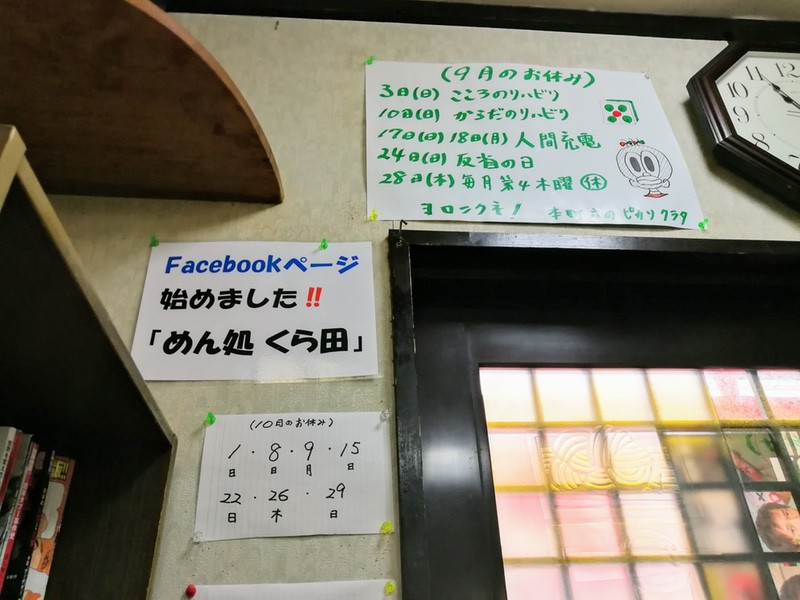 (9月のお休み)
3日(日) こころのリハビリ
10日(日) からだのリハビリ
17日(日) 18日(月) 人間充電
24日(日) 反省の日
28日(木) 毎月第4木曜 休
ヨロシクネ!
Facebookページ
始めました!!
「めん処 くら田」
(10月のお休み)
1・8・9・15
日 日 月 日
22・26・29
日 木 日
12
11
10
9
8